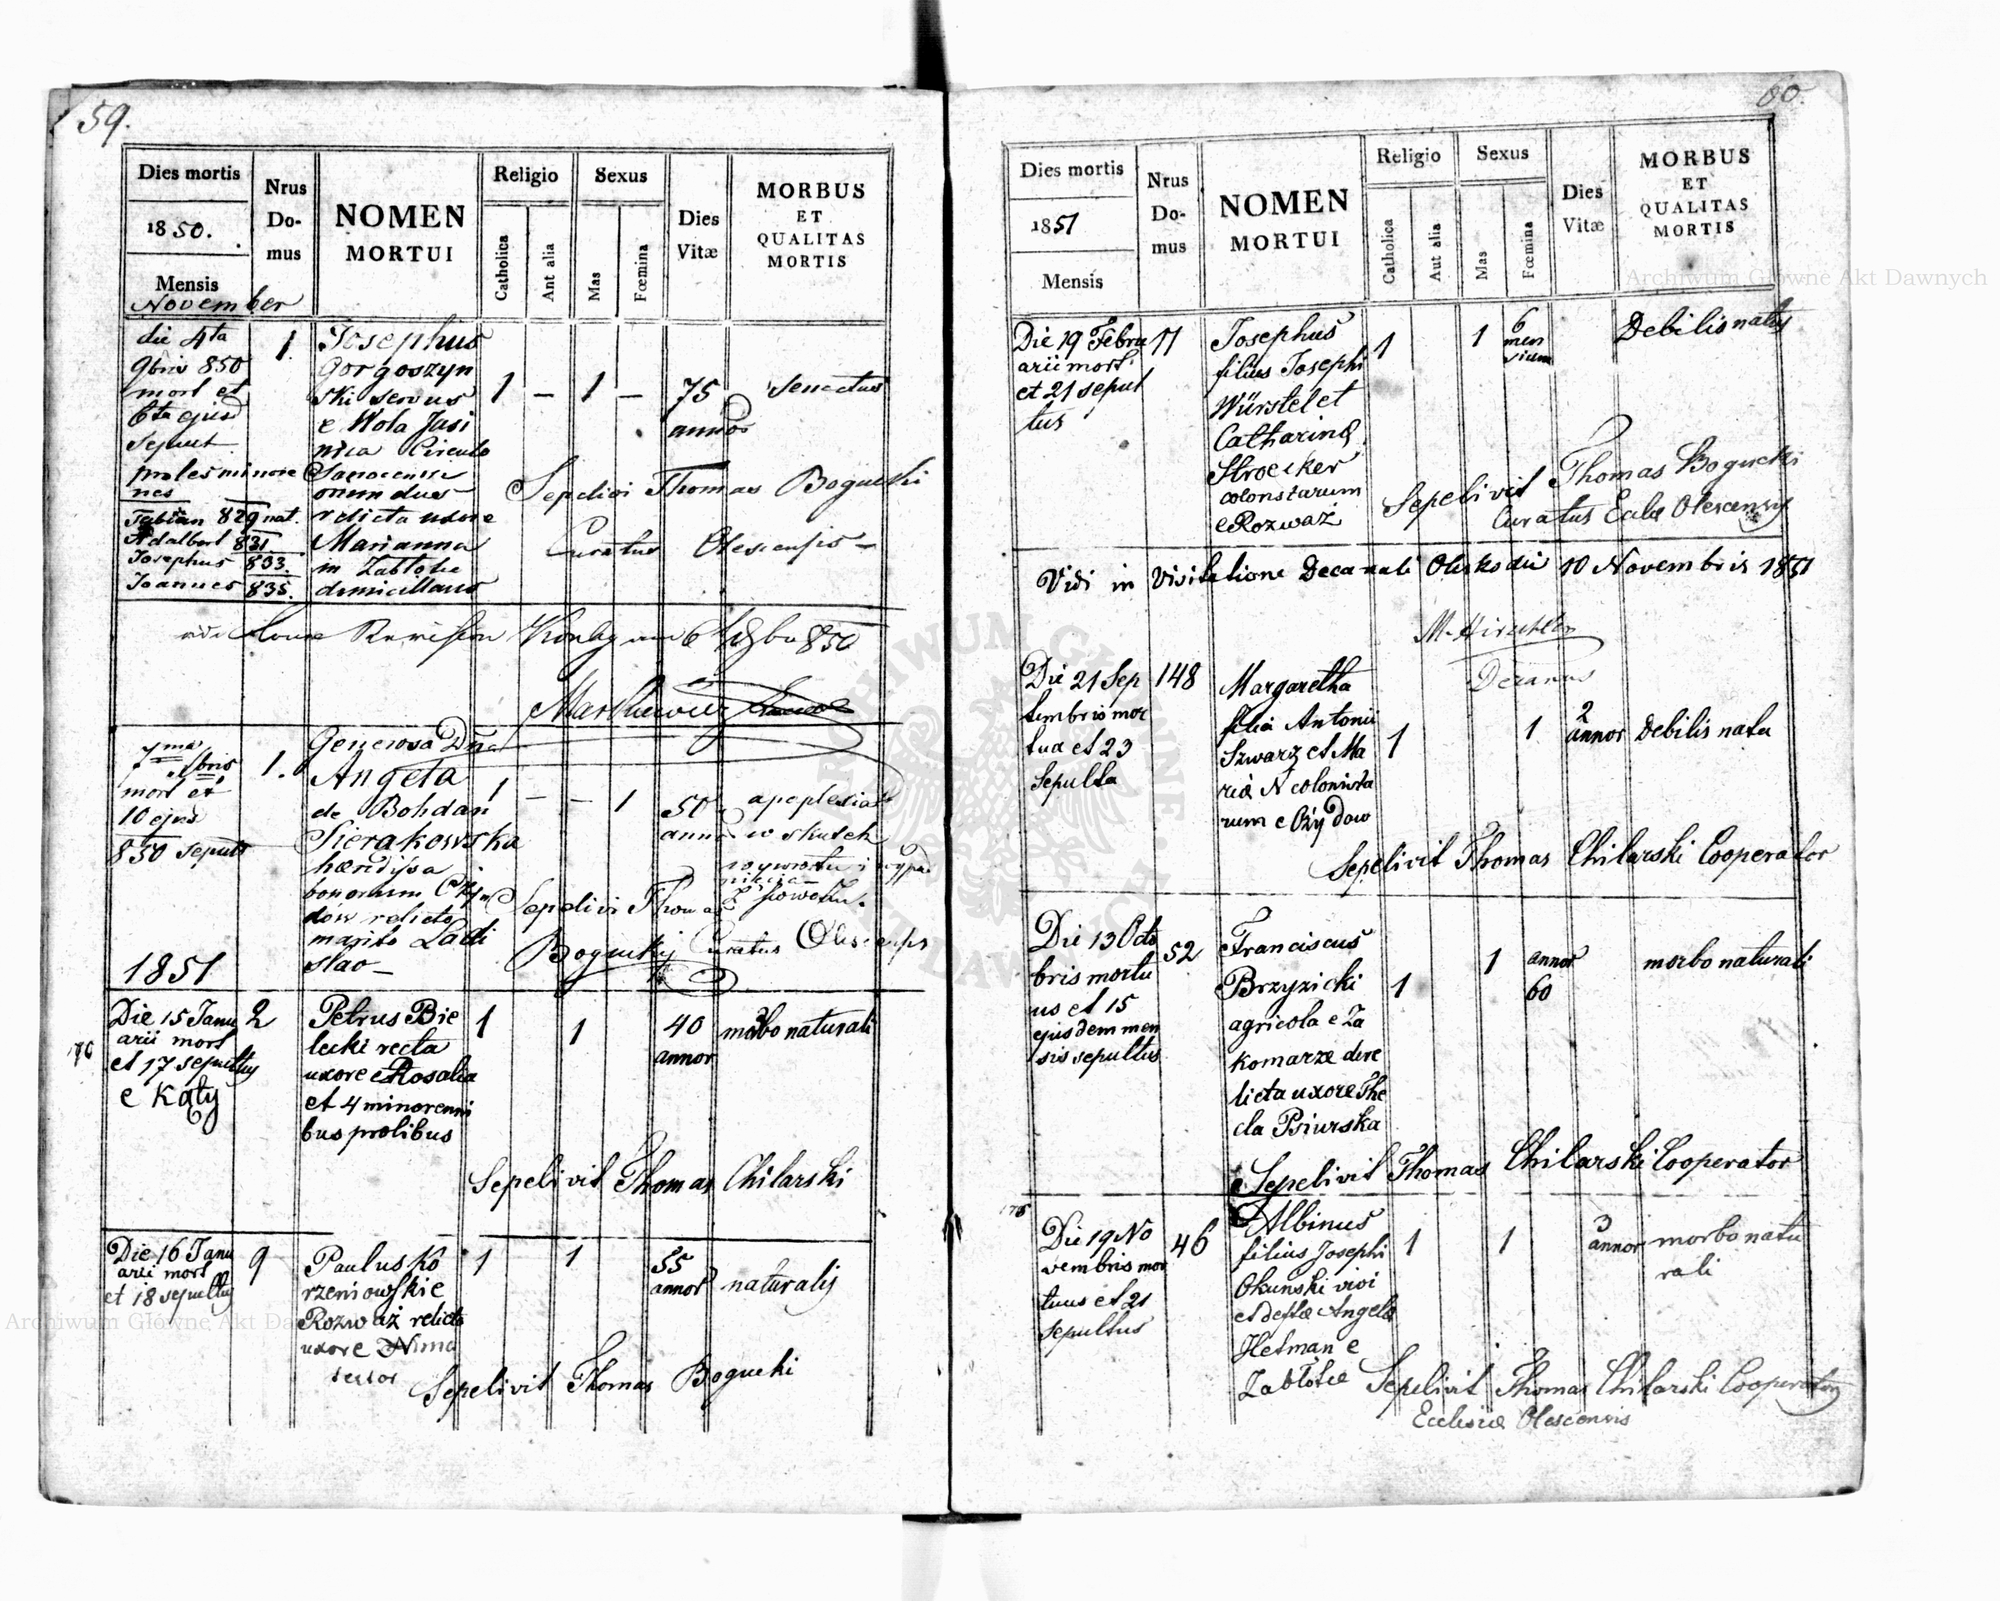 59.
Dies mortis
1850.
Mensis
November
Nrus Do- mus
NOMEN MORTUI
Religio
Catholica
Aut alia
Sexus
Mas
Fœmina
Dies Vitæ
MORBUS ET QUALITAS MORTIS
die 4ta
9bris 850
mort et
6ta ejusd
Sepult
proles minore
nes
Fabian 829 nat.
Adalbert 831.
Josephus 833.
Joannes 835.
1.
Josephus
Gorgoszyn
ski servus
e Wola Jasi
nica Circulo
Sanocensi
oriundus
relicta uxore
Marianna
in Zabłotce
domicilians
1 — 1 —
75
annor
Senectus
Sepelivi Thomas Bogucki
Curatus Olescensis
850
Markiewicz
7ma
9bris
mort et
10 ejusd
850 sepult
1.
Generosa Dna
Angela
de Bohdan
Sierakowska
hæredissa
bonorum Ożyn
dow relicto
marito Ladi
slao
1 — — 1
50
annor
apoplexia
w skutek
wywrotu i wypad
z powozu.
Sepelivi Thomas
Bogucki Curatus Olescensis
1851
Die 15 Janu
arii mort
et 17 sepultus
e Kąty
2
Petrus Bie
lecki recta
uxore Rosalia
et 4 minorenni
bus prolibus
1
1
40
annor
morbo naturali
Sepelivit Thomas Chilarski
Die 16 Janu
arii mort
et 18 sepultus
9
Paulus Ko
rzeniowski e
Rozważ relicta
uxore
1
1
55
annor
naturalis
Sepelivit Thomas Bogucki
60.
Dies mortis
1851
Mensis
Nrus Do- mus
NOMEN MORTUI
Religio
Catholica
Aut alia
Sexus
Mas
Fœmina
Dies Vitæ
MORBUS ET QUALITAS MORTIS
Die 19 Febru
arii mort
et 21 sepul
tus
17
Josephus
filius Josephi
Würstel et
Catharinæ
Stroecker
colonistarum
e Rozważ
1
1
6
men
sium
Debilis natus
Sepelivit Thomas Bogucki
Curatus Eclæ Olescensis
Vidi in Visitatione Decanali Olesko die 10 Novembris 1851
M. Hirschler
Decanus
Die 21 Sep
tembris mor
tua et 23
Sepulta
148
Margaretha
filia Antonii
Szwarz et Ma
riæ N colonista
rum e Ożydow
1
1
2
annor
Debilis nata
Sepelivit Thomas Chilarski Cooperator
Die 13 Octo
bris mortu
us et 15
ejusdem men
sis sepultus
52
Franciscus
Brzyzicki
agricola e Za
komarze dere
licta uxore The
cla Psiurska
1
1
annor
60
morbo naturali
Sepelivit Thomas Chilarski Cooperator
Die 19 No
vembris mor
tuus et 21
sepultus
46
Albinus
filius Josephi
Okunski vivi
et deftæ Angelæ
Hetman e
Zabłotce
1
1
3
annor
morbo natu
rali
Sepelivit Thomas Chilarski Cooperator
Ecclesiæ Olescensis
Archiwum Główne Akt Dawnych
Archiwum Główne Akt Dawnych
ARCHIWUM GŁÓWNE AKT DAWNYCH